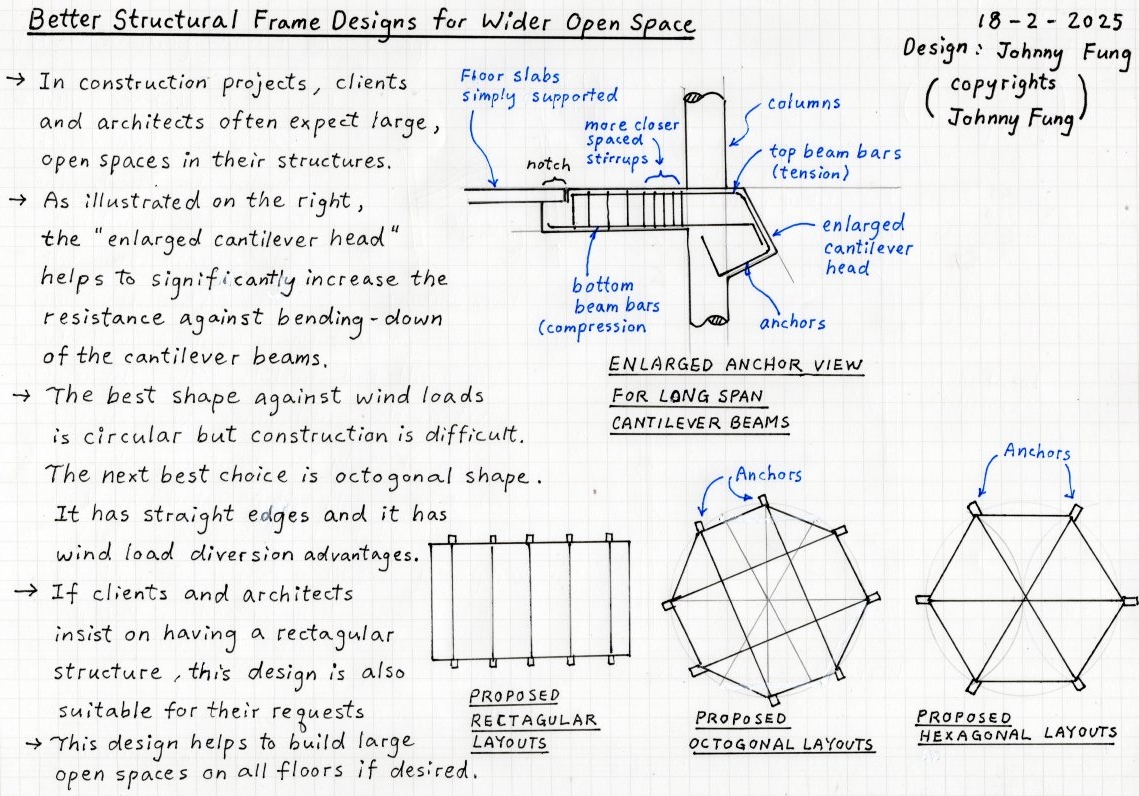 Better Structural Frame Designs for Wider Open Space
18-2-2025
Design: Johnny Fung
(copyrights
Johnny Fung)
→ In construction projects, clients
and architects often expect large,
open spaces in their structures.
→ As illustrated on the right,
the "enlarged cantilever head"
helps to significantly increase the
resistance against bending-down
of the cantilever beams.
→ The best shape against wind loads
is circular but construction is difficult.
The next best choice is octogonal shape.
It has straight edges and it has
wind load diversion advantages.
→ If clients and architects
insist on having a rectagular
structure, this design is also
suitable for their requests
→ This design helps to build large
open spaces on all floors if desired.
Floor slabs
simply supported
notch
more closer
spaced
stirrups
columns
top beam bars
(tension)
enlarged
cantilever
head
bottom
beam bars
(compression
anchors
ENLARGED ANCHOR VIEW
FOR LONG SPAN
CANTILEVER BEAMS
Anchors
Anchors
PROPOSED
RECTAGULAR
LAYOUTS
PROPOSED
OCTOGONAL LAYOUTS
PROPOSED
HEXAGONAL LAYOUTS